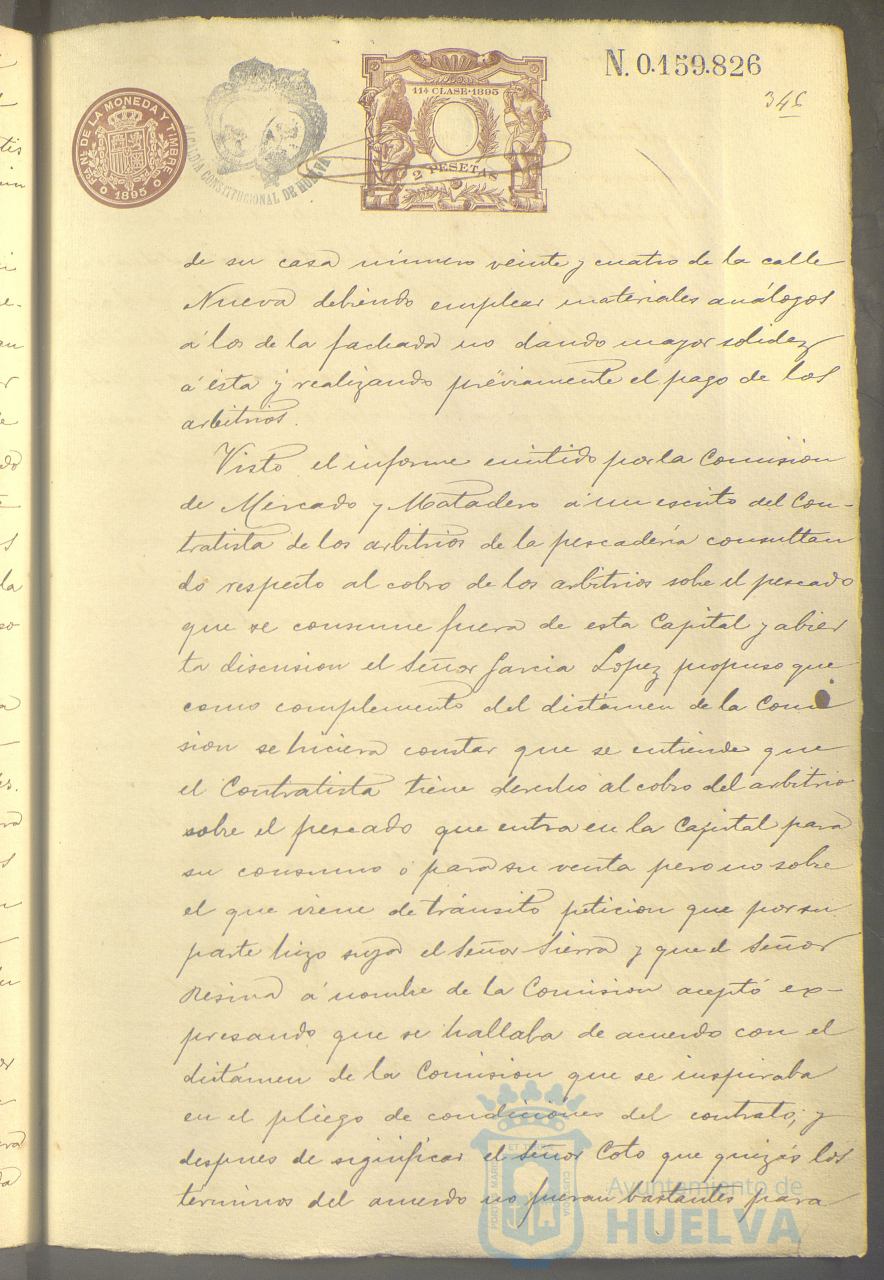 N. 0.159.826
346
FCA. NL. DE LA MONEDA Y TIMBRE
1895
ALCALDIA CONSTITUCIONAL DE HUELVA
11ª CLASE-1895
2 PESETAS
de su casa número veinte y cuatro de la calle
Nueva debiendo emplear materiales análogos
á los de la fachada no dando mayor solidez
á ésta y realizando préviamente el pago de los
arbitrios.
Visto el informe emitido por la Comision
de Mercado y Matadero á un escrito del Con-
tratista de los arbitrios de la pescadería consultan
do respecto al cobro de los arbitrios sobe el pescado
que se consume fuera de esta Capital y abier
ta discusion el Señor Garcia Lopez propuso que
como complemento del dictámen de la Comi
sion se hiciera constar que se entiende que
el Contratista tiene derecho al cobro del arbitrio
sobre el pescado que entra en la Capital para
su consumo ó para su venta pero no sobre
el que viene de tránsito peticion que por su
parte hizo suya el Señor Sierra y que el Señor
Resina á nombre de la Comision aceptó ex-
presando que se hallaba de acuerdo con el
dictámen de la Comision que se inspiraba
en el pliego de condiciones del contrato; y
despues de significar el Señor Coto que quizás los
terminos del acuerdo no fueran bastantes para
PORTUS MARIS ET TERRAE CUSTODIA
Ayuntamiento de
HUELVA